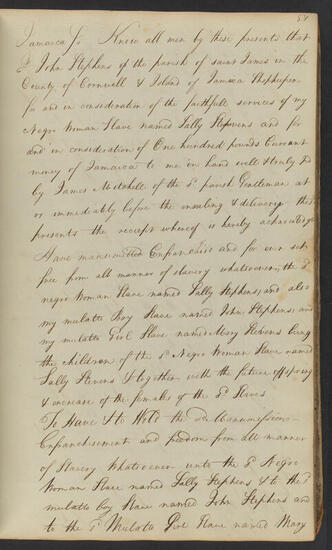 51
Jamaica Ss Know all men by these presents that
I John Stephens of the parish of saint James in the
County of Cornwall & Island of Jamaica Shopkeeper
for and in consideration of the faithfull services of my
Negro Woman Slave named Sally Stephens and for
and in consideration of One hundred pounds Current
money of Jamaica to me in hand well & truly Pd
by James Mitchell of the Sd parish Gentleman at
or immediately before the ensealing & delivery these
presents the receipt whereof is hereby acknowledge
Have manumitted Enfranchise and for ever set
free from all manner of slavery whatsoever the Sd
negro Woman Slave named Sally Stephens and also
my mulatto Boy Slave named John Stephens and
my mulatto Girl Slave named Mary Stevens being
the children of the Sd Negro Woman Slave named
Sally Stevens & together with the future offspring
& increase of the females of the Sd Slaves
To Have & to Hold the Manumission
Enfranchisement and freedom from all manner
of Slavery Whatsoever unto the Sd Negro
Woman Slave named Sally Stephens & to the Sd
mulatto boy Slave named John Stephens and
to the Sd Mulatto Girl Slave named Mary